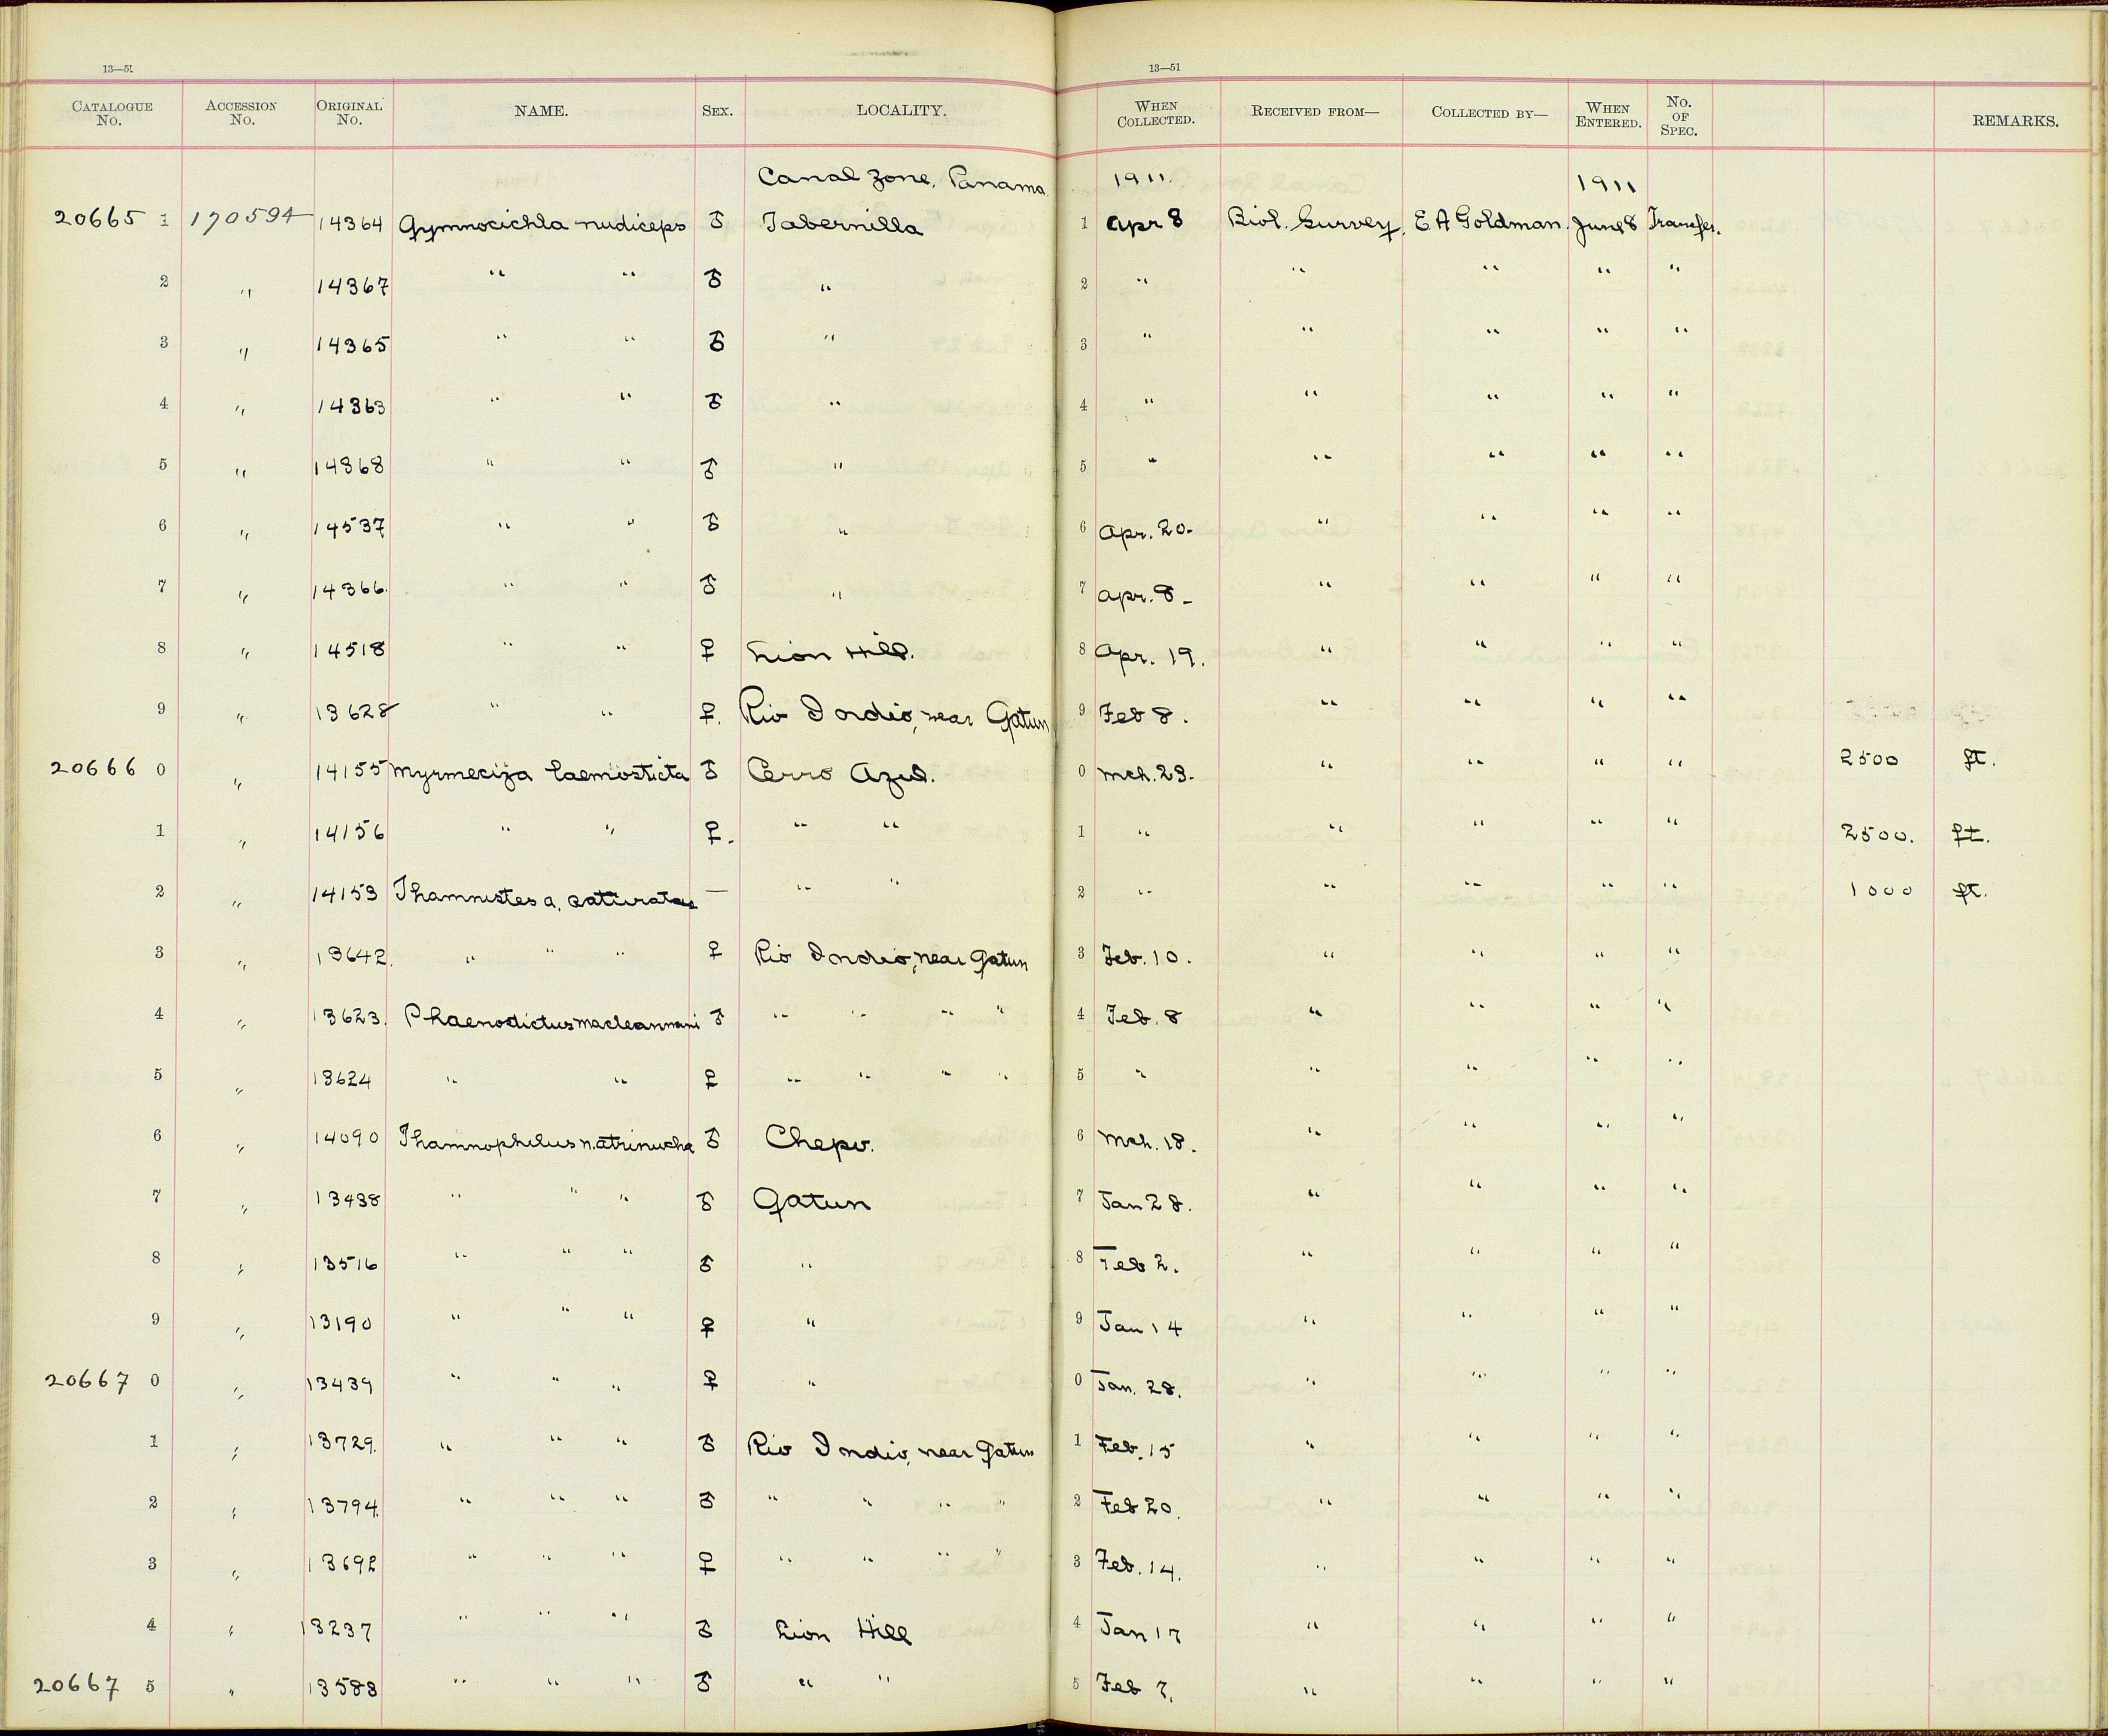 13—51 13—51
CATALOGUE No. ACCESSION No. ORIGINAL No. NAME. SEX. LOCALITY. WHEN COLLECTED. RECEIVED FROM— COLLECTED BY— WHEN ENTERED. No. OF SPEC. REMARKS.
Canal Zone, Panama 1911. 1911
20665 1 170594 14364 Gymnocichla nudiceps ♂ Tabernilla 1 Apr 8 Biol. Survey. E A Goldman. June 8 Transfer.
2 " 14367 " " ♂ " 2 " " " " "
3 " 14365 " " ♂ " 3 " " " " "
4 " 14363 " " ♂ " 4 " " " " "
5 " 14368 " " ♂ " 5 " " " " "
6 " 14537 " " ♂ " 6 Apr. 20- " " " "
7 " 14366. " " ♂ " 7 Apr. 8- " " " "
8 " 14518 " " ♀ Lion Hill. 8 Apr. 19. " " " "
9 " 13628 " " ♀. Rio Indio, near Gatun 9 Feb 8. " " " "
20666 0 " 14155 Myrmeciza laemosticta ♂ Cerro Azul. 0 Mch. 23. " " " " 2500 ft.
1 " 14156 " " ♀. " " 1 " " " " " 2500. ft.
2 " 14153 Thamnistes a. — " " 2 " " " " " 1000 ft.
3 " 13642. " " " ♀ Rio Indio, near Gatun 3 Feb. 10. " " " "
4 " 13623. Phaenodictus macleannani ♂ " " " " 4 Feb. 8 " " " "
5 " 13624 " " ♀ " " " " 5 " " " " "
6 " 14090 Thamnophilus n. atrinucha ♂ Chepo. 6 Mch. 18. " " " "
7 " 13438 " " " ♂ Gatun 7 Jan 28. " " " "
8 " 13516 " " " ♂ " 8 Feb 2. " " " "
9 " 13190 " " " ♀ " 9 Jan 14 " " " "
20667 0 " 13439 " " " ♀ " 0 Jan. 28. " " " "
1 " 13729. " " " ♂ Rio Indio, near Gatun 1 Feb. 15 " " " "
2 " 13794. " " " ♂ " " " " 2 Feb 20. " " " "
3 " 13692 " " " ♀ " " " " 3 Feb. 14. " " " "
4 " 13237 " " " ♂ Lion Hill 4 Jan 17 " " " "
20667 5 " 13583 " " " ♂ " " 5 Feb 7. " " " "